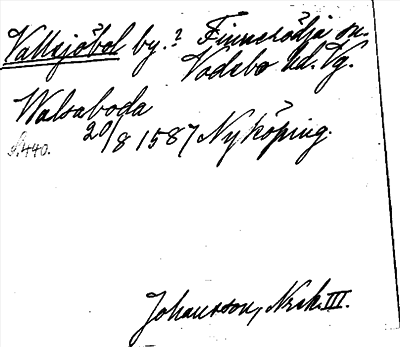 Vallsjöbol by.? Finnerödja sn.
Vadsbo hd. Vg.
Walsaboda
20/8 1587 Nyköping.
S. 440.
Johansson, Nrk. III.